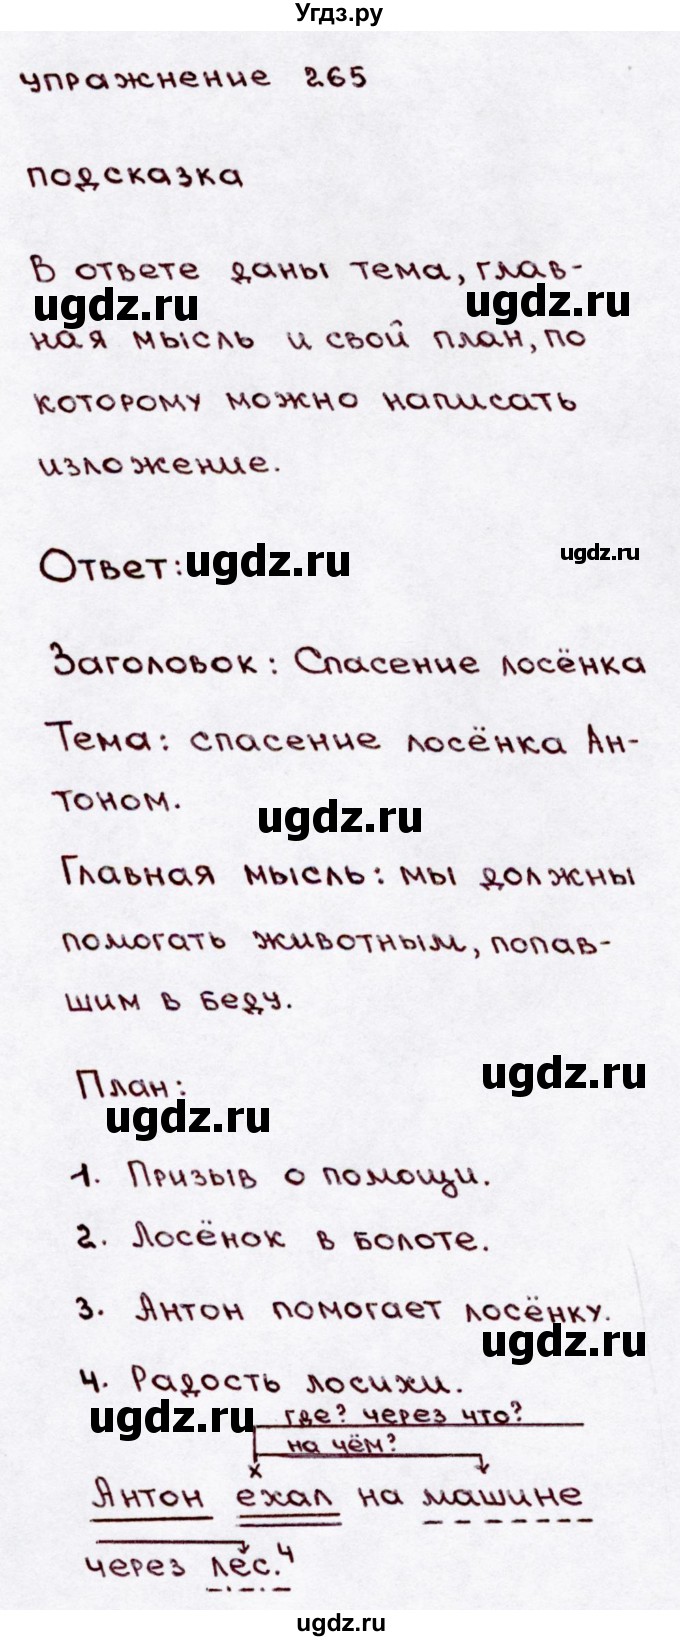 Угдз.ру
упражнение 265
подсказка
В ответе даны тема, глав-
ugdz.ru ugdz.ru
ная мысль и свой план, по
которому можно написать
изложение.
Ответ: ugdz.ru ugdz.ru
Заголовок: Спасение лосёнка
Тема: спасение лосёнка Ан-
тоном.
ugdz.ru
Главная мысль: мы должны
помогать животным, попав-
шим в беду.
План:
ugdz.ru
ugdz.ru
1. Призыв о помощи.
2. Лосёнок в болоте.
3. Антон помогает лосёнку.
ugdz.ru
4. Радость лосихи.
ugdz.ru где? через что?
на чём?
х
Антон ехал на машине
через лес.⁴
ugdz.ru